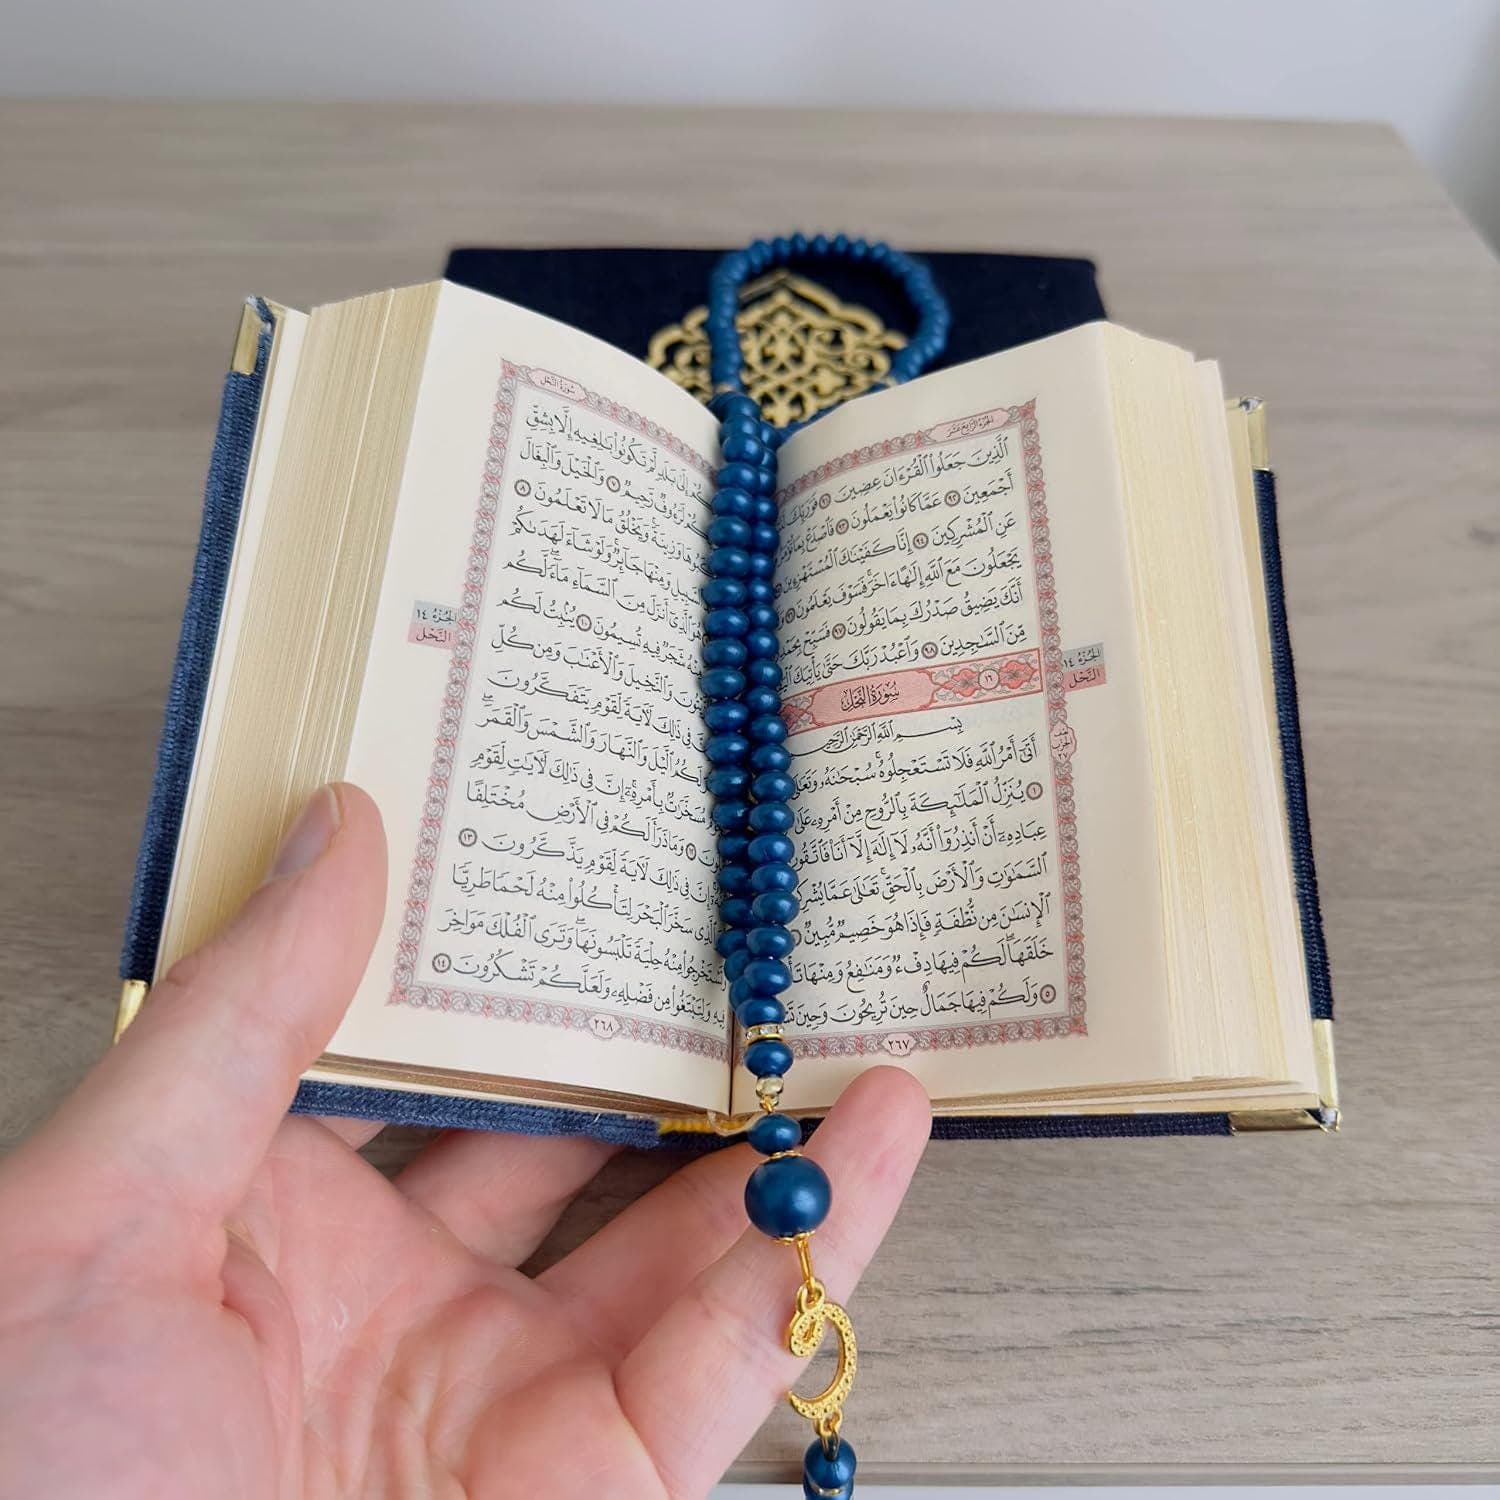 الجزء الرابع عشر
الَّذِينَ جَعَلُوا الْقُرْءَانَ عِضِينَ ٩١ فَوَرَبِّكَ
أَجْمَعِينَ ٩٢ عَمَّا كَانُوا يَعْمَلُونَ ٩٣ فَاصْدَعْ بِمَا تُؤْمَرُ
عَنِ الْمُشْرِكِينَ ٩٤ إِنَّا كَفَيْنَاكَ الْمُسْتَهْزِءِينَ
يَجْعَلُونَ مَعَ اللَّهِ إِلَٰهًا ءَاخَرَ فَسَوْفَ يَعْلَمُونَ ٩٦
أَنَّكَ يَضِيقُ صَدْرُكَ بِمَا يَقُولُونَ ٩٧ فَسَبِّحْ بِحَمْدِ
مِّنَ السَّاجِدِينَ ٩٨ وَاعْبُدْ رَبَّكَ حَتَّىٰ يَأْتِيَكَ
١٦
سُورَةُ النَّحْلِ
بِسْمِ اللَّهِ الرَّحْمَٰنِ الرَّحِيمِ
أَتَىٰ أَمْرُ اللَّهِ فَلَا تَسْتَعْجِلُوهُ سُبْحَانَهُ وَتَعَالَىٰ
١ يُنَزِّلُ الْمَلَائِكَةَ بِالرُّوحِ مِنْ أَمْرِهِ عَلَىٰ
عِبَادِهِ أَنْ أَنذِرُوا أَنَّهُ لَا إِلَٰهَ إِلَّا أَنَا فَاتَّقُونِ
السَّمَاوَاتِ وَالْأَرْضَ بِالْحَقِّ تَعَالَىٰ عَمَّا يُشْرِكُونَ
الْإِنسَانَ مِن نُّطْفَةٍ فَإِذَا هُوَ خَصِيمٌ مُّبِينٌ
خَلَقَهَا لَكُمْ فِيهَا دِفْءٌ وَمَنَافِعُ وَمِنْهَا
٥ وَلَكُمْ فِيهَا جَمَالٌ حِينَ تُرِيحُونَ وَحِينَ
٢٦٧
الجزء ١٤
النحل
نصف الحزب ٢٧
سورة النحل
إِلَىٰ بَلَدٍ لَّمْ تَكُونُوا بَالِغِيهِ إِلَّا بِشِقِّ
لَرَءُوفٌ رَّحِيمٌ ٧ وَالْخَيْلَ وَالْبِغَالَ
وَزِينَةً وَيَخْلُقُ مَا لَا تَعْلَمُونَ ٨
السَّبِيلِ وَمِنْهَا جَائِرٌ وَلَوْ شَاءَ لَهَدَاكُمْ
هُوَ الَّذِي أَنزَلَ مِنَ السَّمَاءِ مَاءً لَّكُم
شَجَرٌ فِيهِ تُسِيمُونَ ١٠ يُنبِتُ لَكُم
وَالنَّخِيلَ وَالْأَعْنَابَ وَمِن كُلِّ
فِي ذَٰلِكَ لَآيَةً لِّقَوْمٍ يَتَفَكَّرُونَ
لَكُمُ اللَّيْلَ وَالنَّهَارَ وَالشَّمْسَ وَالْقَمَرَ
مُسَخَّرَاتٌ بِأَمْرِهِ إِنَّ فِي ذَٰلِكَ لَآيَاتٍ لِّقَوْمٍ
١٢ وَمَا ذَرَأَ لَكُمْ فِي الْأَرْضِ مُخْتَلِفًا
إِنَّ فِي ذَٰلِكَ لَآيَةً لِّقَوْمٍ يَذَّكَّرُونَ ١٣
الَّذِي سَخَّرَ الْبَحْرَ لِتَأْكُلُوا مِنْهُ لَحْمًا طَرِيًّا
وَتَسْتَخْرِجُوا مِنْهُ حِلْيَةً تَلْبَسُونَهَا وَتَرَى الْفُلْكَ مَوَاخِرَ
فِيهِ وَلِتَبْتَغُوا مِن فَضْلِهِ وَلَعَلَّكُمْ تَشْكُرُونَ ١٤
٢٦٨
الجزء ١٤
النحل